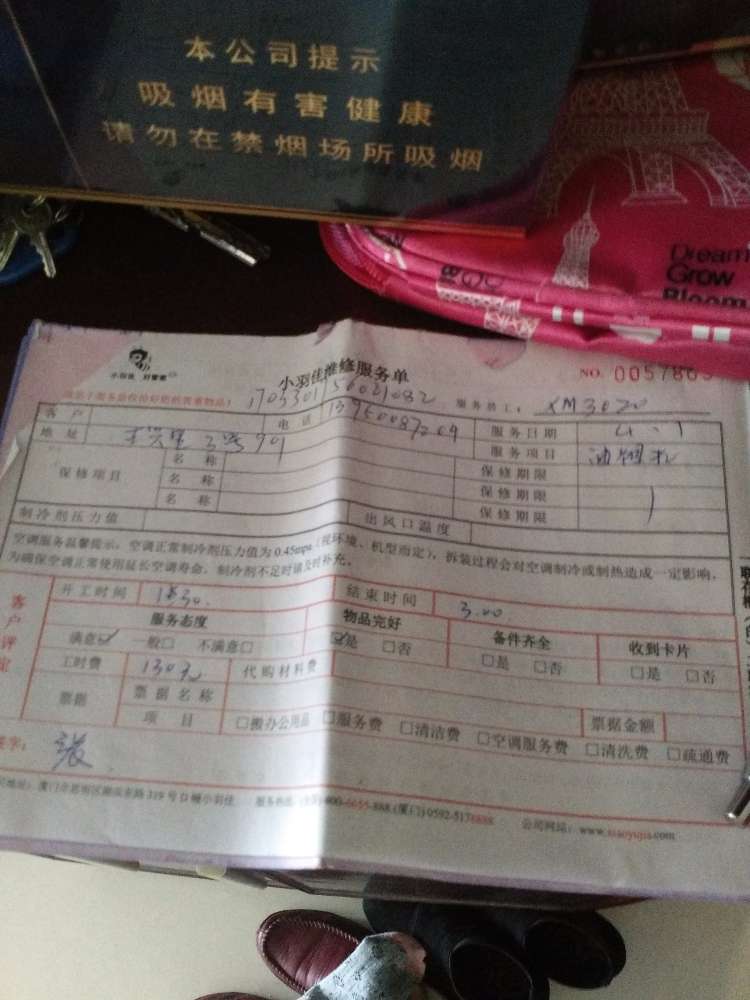 本公司提示
吸烟有害健康
请勿在禁烟场所吸烟
Dream
Grow
Bloom
小羽佳 好管家
小羽佳维修服务单
NO. 005786
1703301156021082
服务员工: XM3020
客户 电话 13950087204 服务日期 4.1
地址 2号901 服务项目 油烟机
保修项目 名称 保修期限
名称 保修期限
名称 保修期限
制冷剂压力值 出风口温度
空调服务温馨提示:空调正常制冷剂压力值为0.45mpa(视环境、机型而定),拆装过程会对空调制冷或制热造成一定影响,
为确保空调正常使用延长空调寿命,制冷剂不足时请及时补充。
客户评定
开工时间 1:30. 结束时间 3.00
服务态度 物品完好 备件齐全 收到卡片
满意☑ 一般□ 不满意□ ☑是 □否 □是 □否 □是 □否
工时费 130元 代购材料费
票据 票据名称 票据金额
项目 □搬办公用品 □服务费 □清洁费 □空调服务费 □清洗费 □疏通费
签字: 张
319号 小羽佳 服务热线: 400-6655-888 (厦门)0592-5178888 公司网站: www.xiaoyujia.com